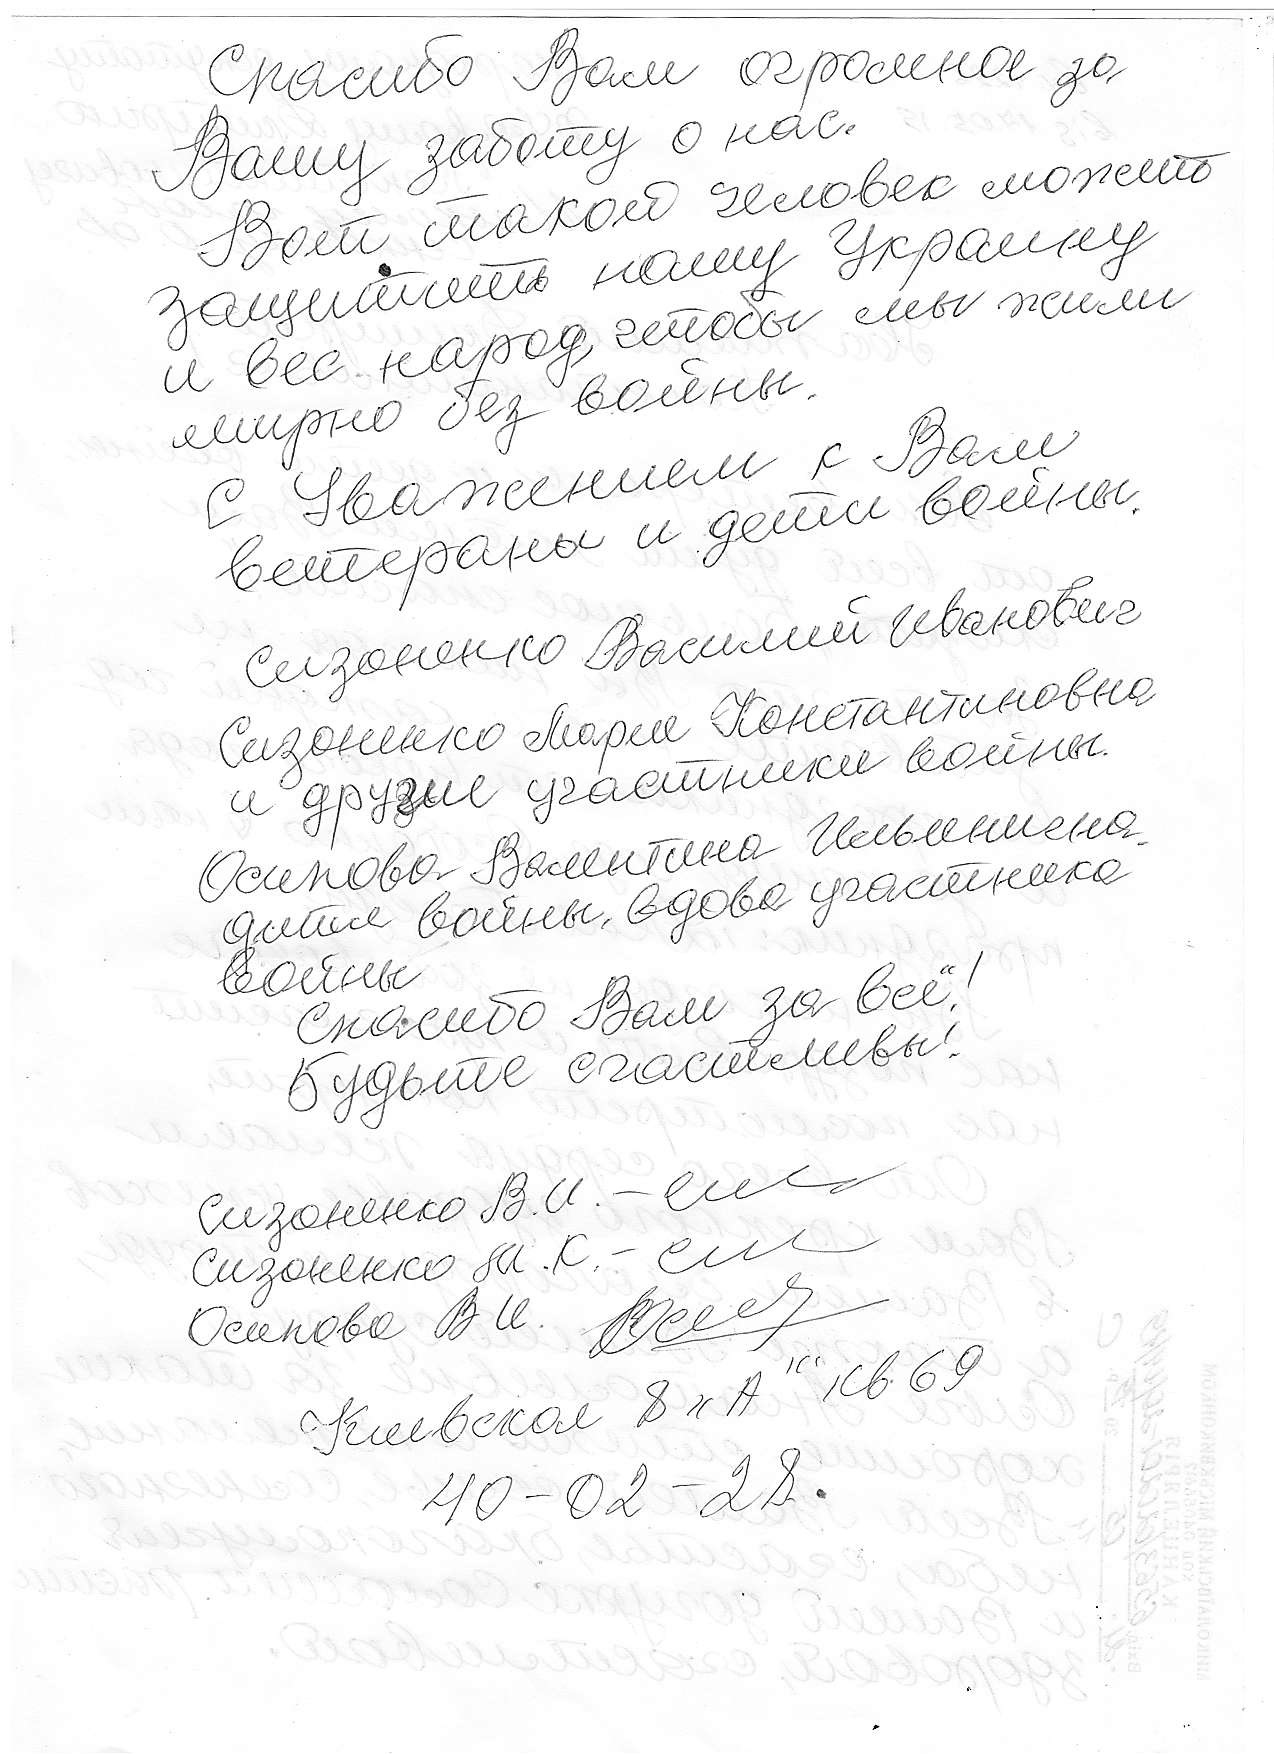 Спасибо Вам огромное за
Вашу заботу о нас.
Вот такой человек может
защитить нашу Украину
и вес народ, чтобы мы жили
мирно без войны.
С Уважением к Вам
ветераны и дети войны.
Сизоненко Василий Иванович
Сизоненко Мария Константиновна
и другие участники войны.
Осипова Валентина Ильинична
дитя войны, вдова участника
войны
Спасибо Вам за всё!
Будьте счастливы!
Сизоненко В.И. –
Сизоненко М.К. –
Осипова В И.
Киевская 8 "А" кв 69
40-02-28.